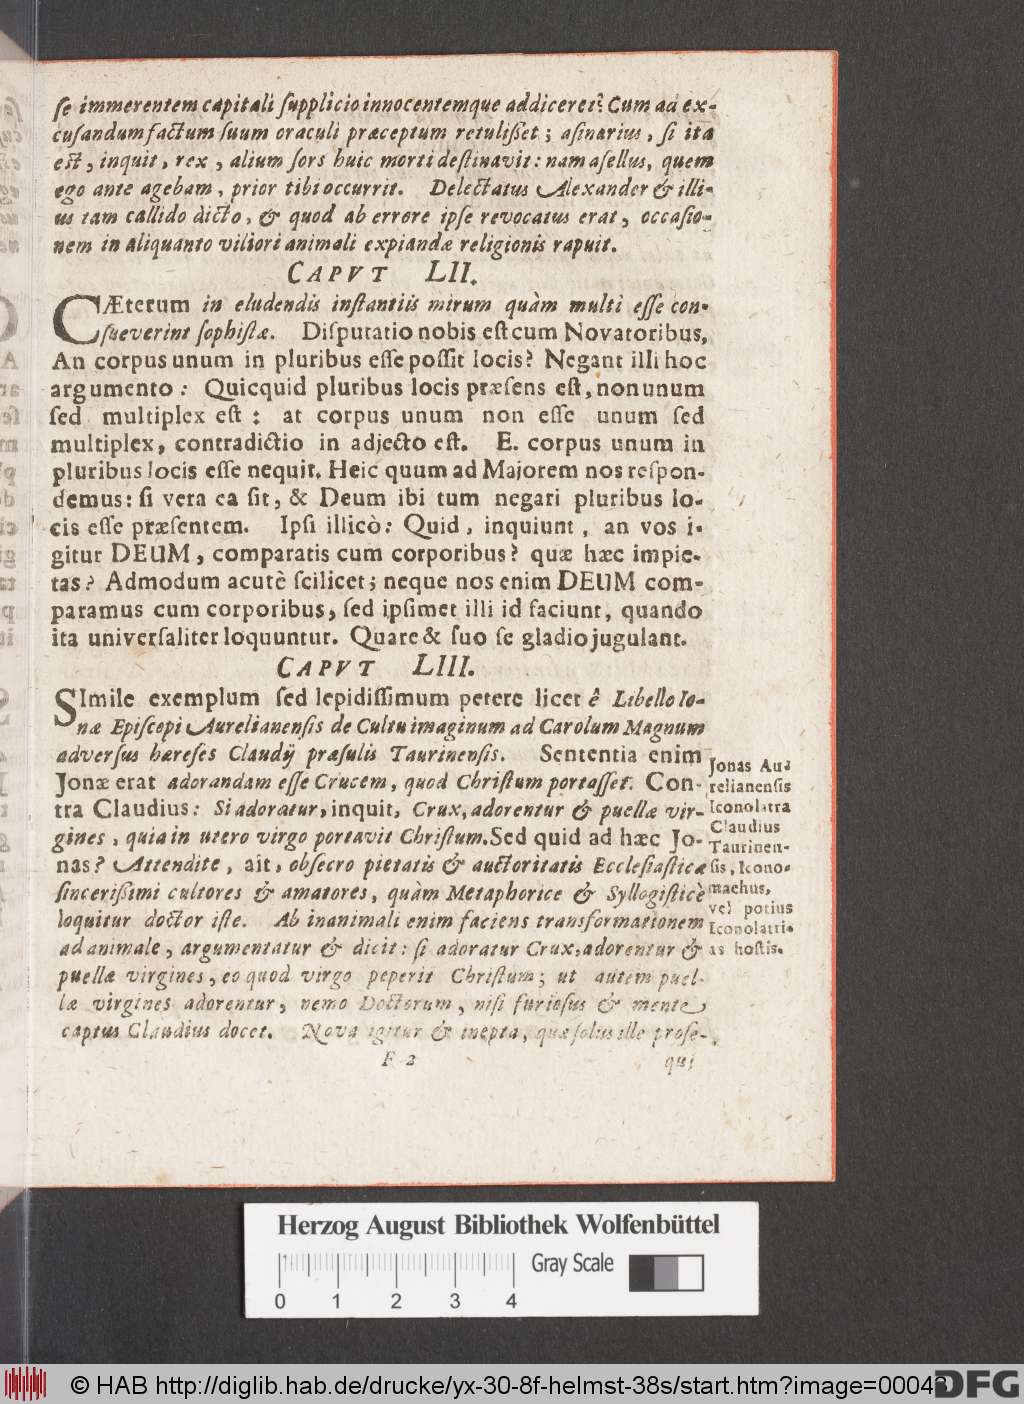 se immerentem capitali supplicio innocentemque addiceret? Cum ad ex-
cusandum factum suum oraculi præceptum retulißet; asinarius, si ita
est, inquit, rex, alium sors huic morti destinavit: nam asellus, quem
ego ante agebam, prior tibi occurrit. Delectatus Alexander & illi-
us tam callido dicto, & quod ab errore ipse revocatus erat, occasio-
nem in aliquanto viliori animali expiandæ religionis rapuit.
CAPVT LII.
CÆterum in eludendis instantiis mirum quàm multi esse con-
sueverint sophistæ. Disputatio nobis est cum Novatoribus,
An corpus unum in pluribus esse possit locis? Negant illi hoc
argumento: Quicquid pluribus locis præsens est, non unum
sed multiplex est: at corpus unum non esse unum sed
multiplex, contradictio in adjecto est. E. corpus unum in
pluribus locis esse nequit. Heic quum ad Majorem nos respon-
demus: si vera ea sit, & Deum ibi tum negari pluribus lo-
cis esse præsentem. Ipsi illicò: Quid, inquiunt, an vos i-
gitur DEUM, comparatis cum corporibus? quæ hæc impie-
tas? Admodum acutè scilicet; neque nos enim DEUM com-
paramus cum corporibus, sed ipsimet illi id faciunt, quando
ita universaliter loquuntur. Quare & suo se gladio jugulant.
CAPVT LIII.
SImile exemplum sed lepidissimum petere licet ê Libello Io-
næ Episcopi Aurelianensis de Cultu imaginum ad Carolum Magnum
adversus hæreses Claudij præsulis Taurinensis. Sententia enim
Jonæ erat adorandam esse Crucem, quod Christum portasset. Con-
tra Claudius: Si adoratur, inquit, Crux, adorentur & puellæ vir-
gines, quia in utero virgo portavit Christum. Sed quid ad hæc Jo-
nas? Attendite, ait, obsecro pietatis & auctoritatis Ecclesiasticæ
sincerißimi cultores & amatores, quàm Metaphorice & Syllogisticè
loquitur doctor iste. Ab inanimali enim faciens transformationem
ad animale, argumentatur & dicit: si adoratur Crux, adorentur &
puellæ virgines, eo quod virgo peperit Christum; ut autem puel-
læ virgines adorentur, nemo Doctorum, nisi furiosus & mente
captus Claudius docet. Nova igitur & inepta, quæ solus ille prose-
F 2
qui
Jonas Au-
relianensis
Iconolatra
Claudius
Taurinen-
sis, Icono-
machus,
vel potius
Iconolatri-
as hostis.
Herzog August Bibliothek Wolfenbüttel
Gray Scale
0 1 2 3 4
© HAB http://diglib.hab.de/drucke/yx-30-8f-helmst-38s/start.htm?image=00043
DFG